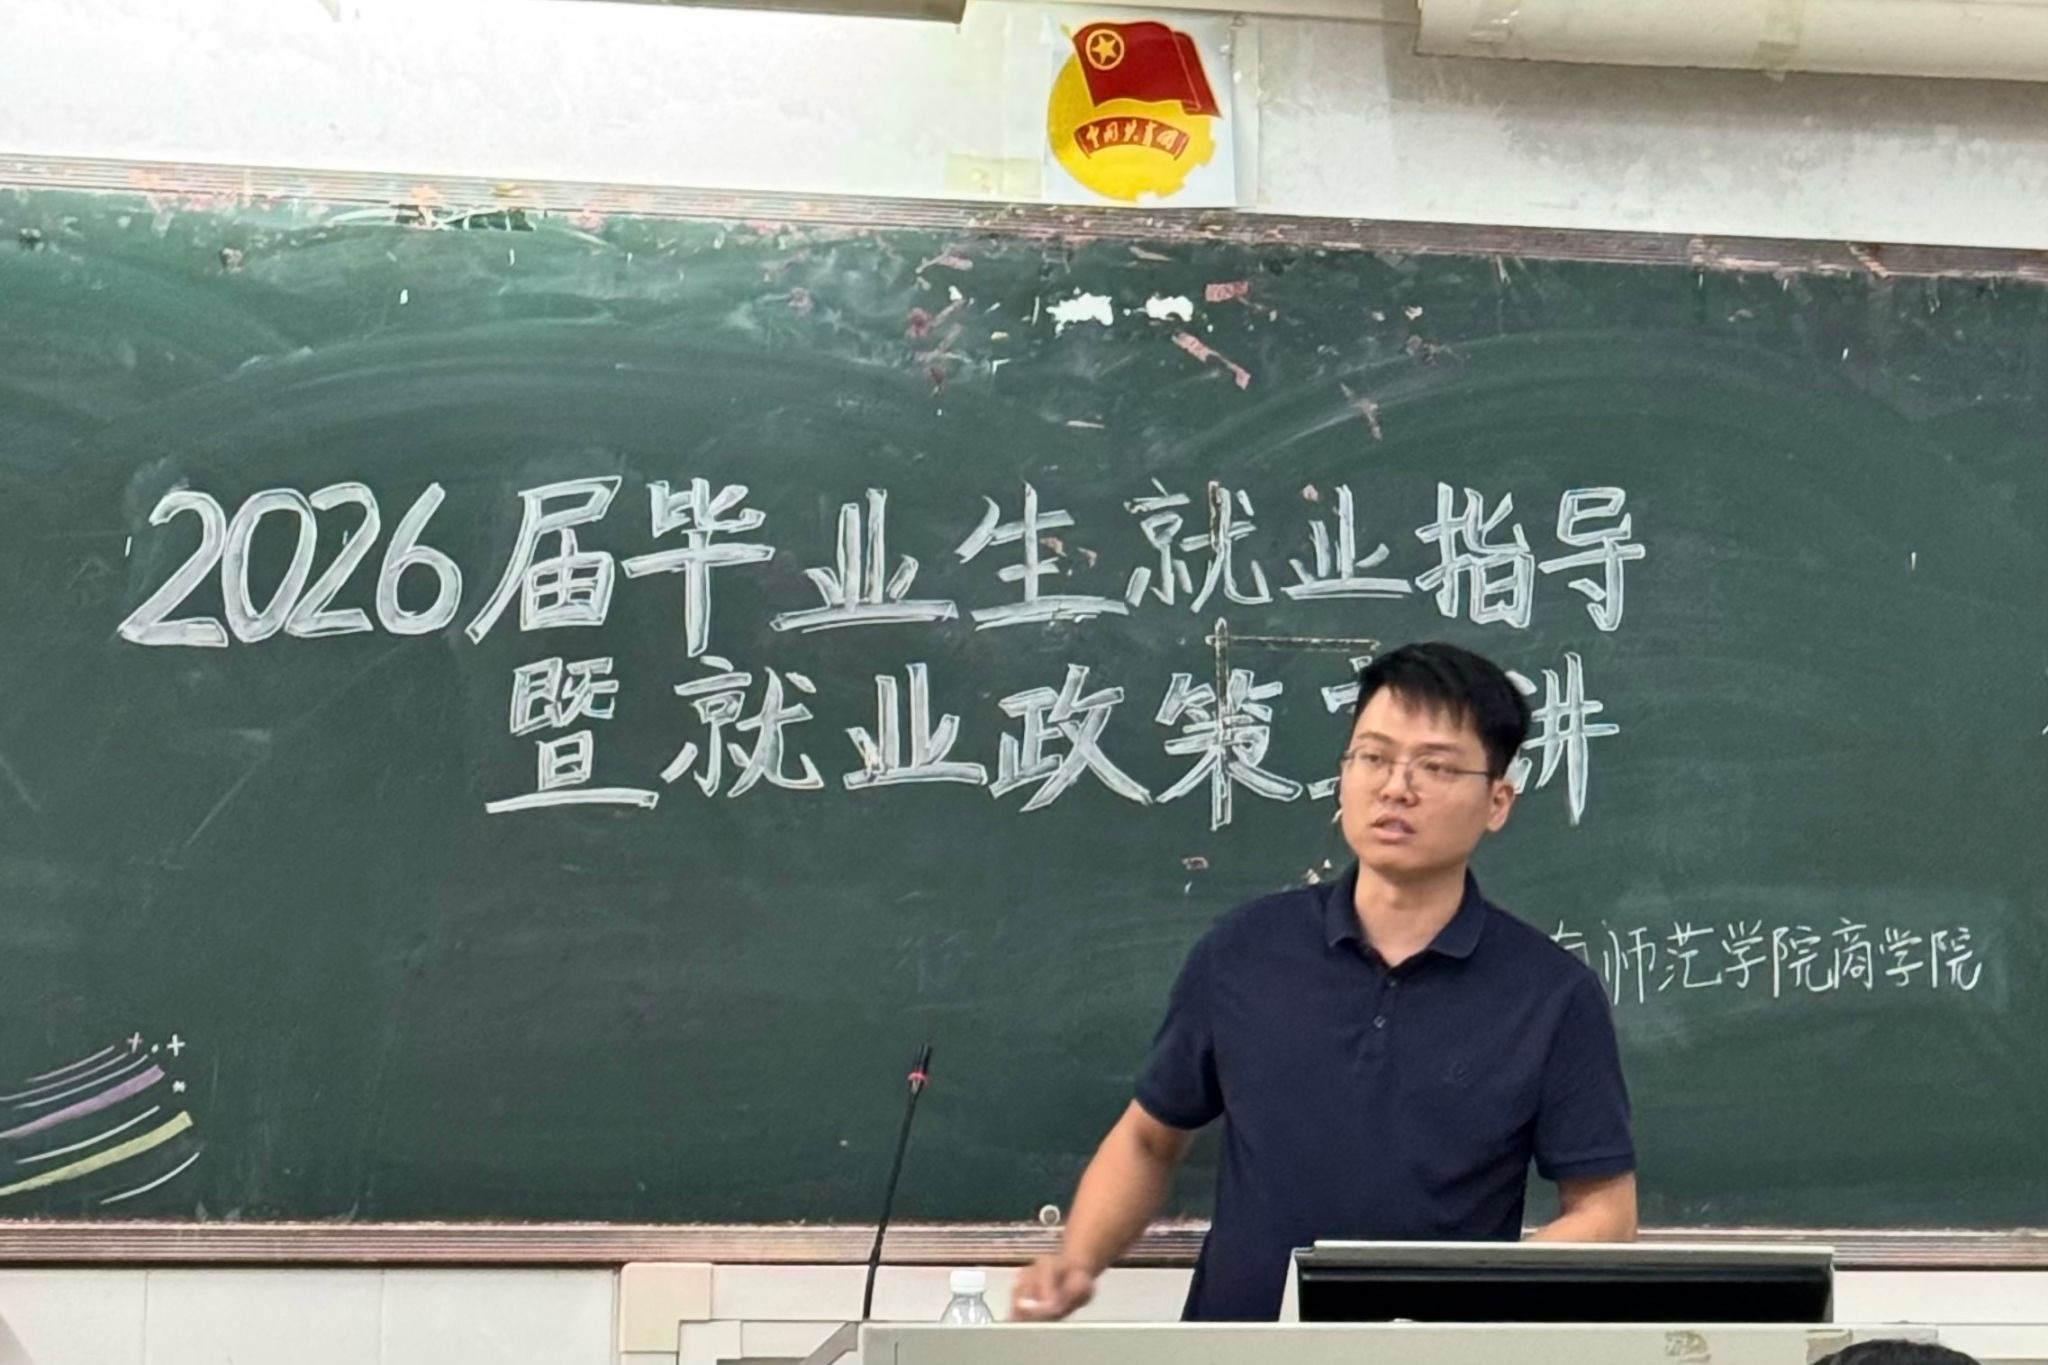 中国共青团
2026届毕业生就业指导
暨就业政策讲
师范学院商学院